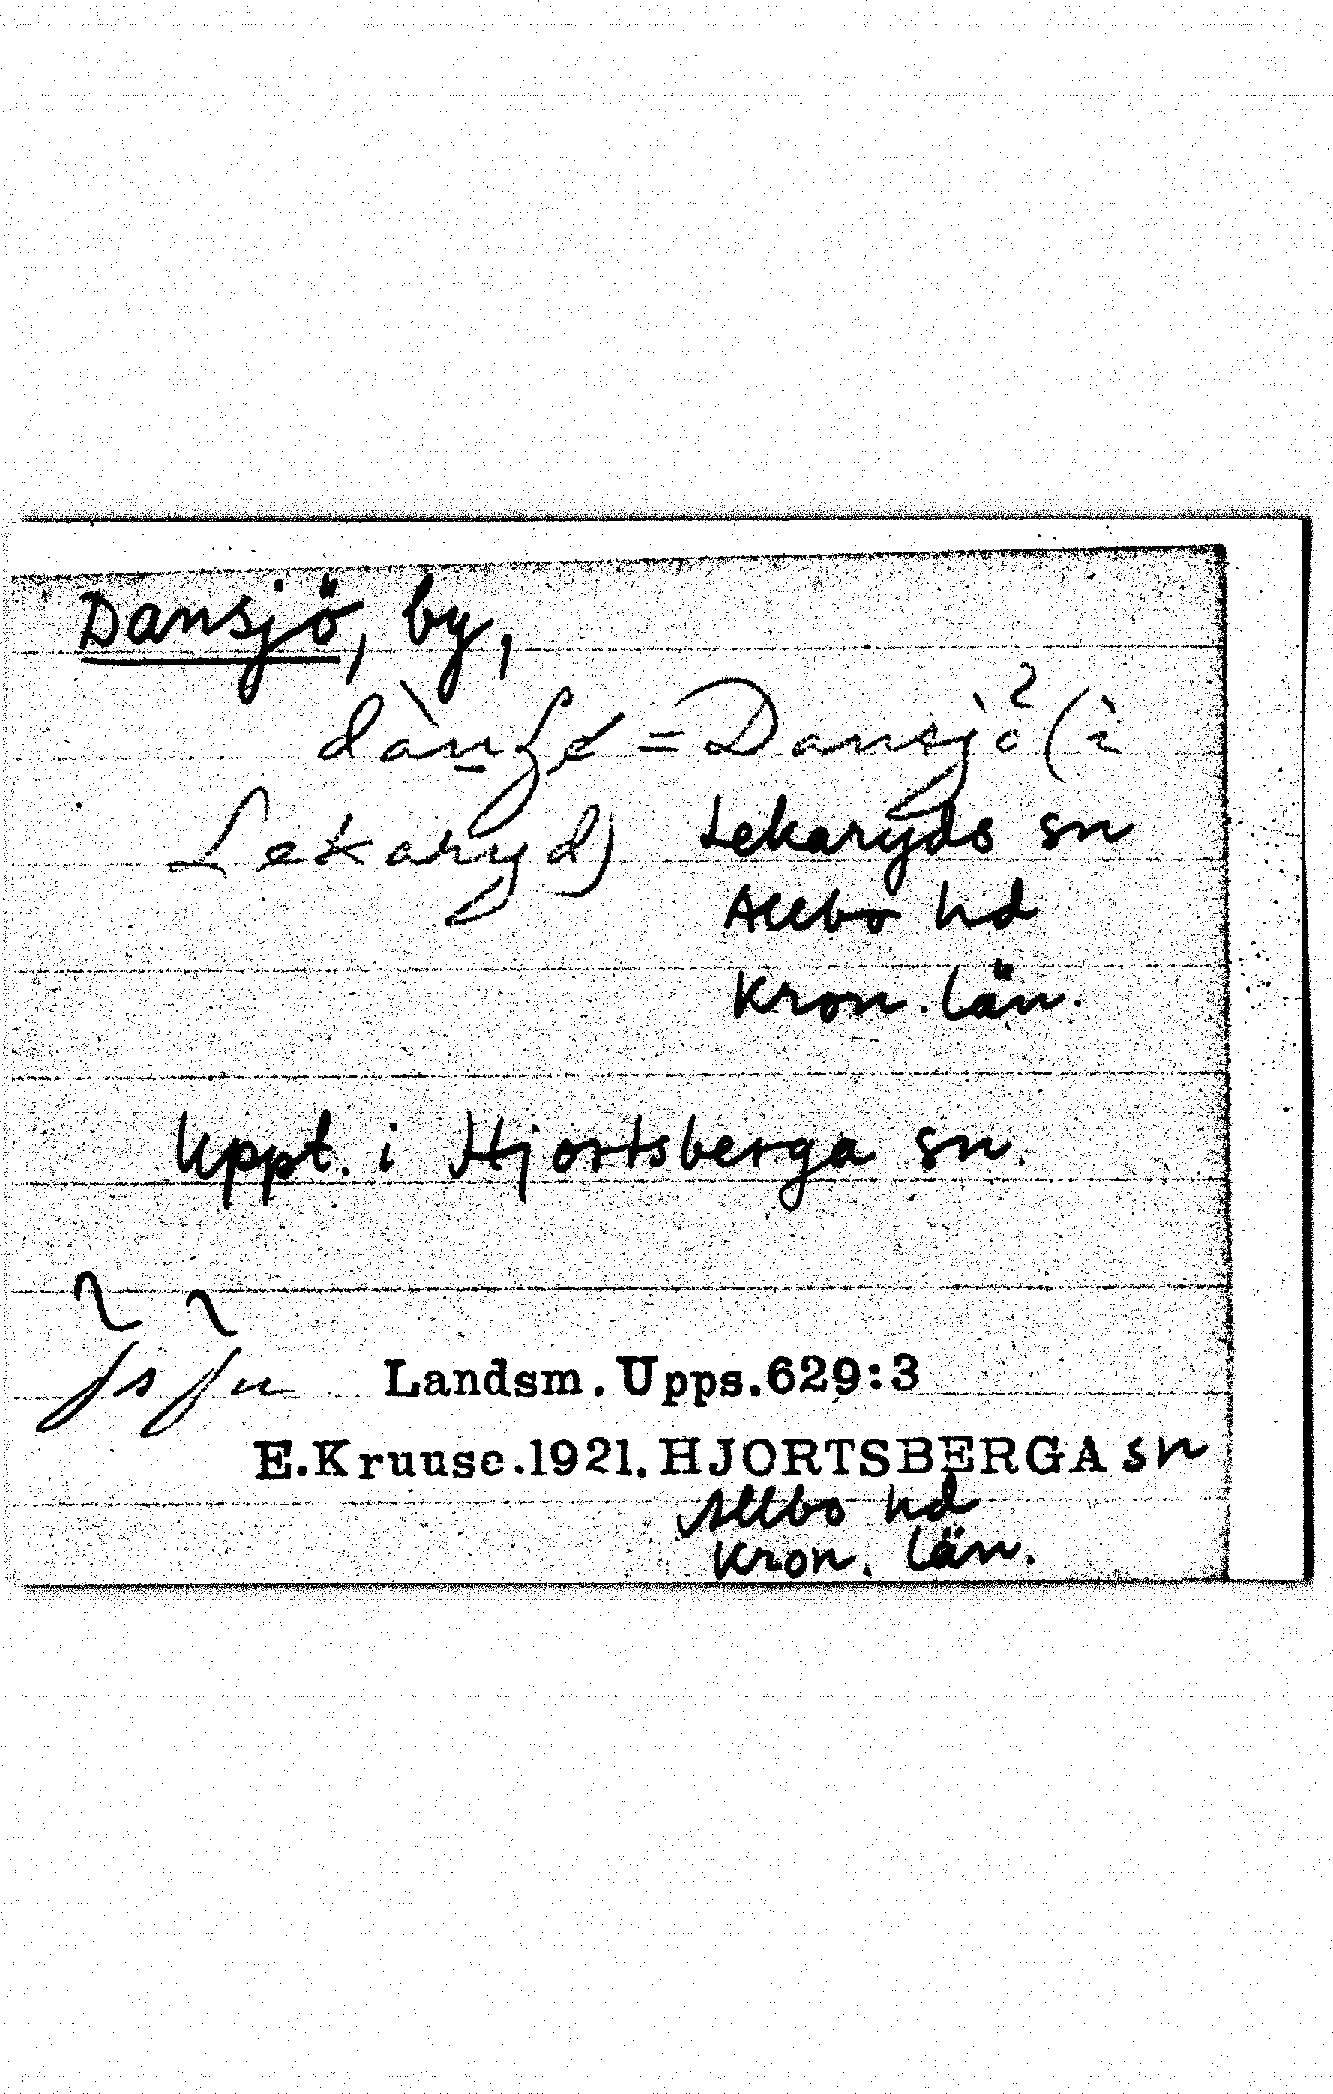 Dansjö, by,
= Dansjö (i
Lekaryd) Lekaryds sn
Allbo hd
Kron. län.
Uppt. i Hjortsberga sn.
Landsm. Upps. 629:3
E. Kruuse. 1921. HJORTSBERGA sn
Allbo hd
Kron. län.